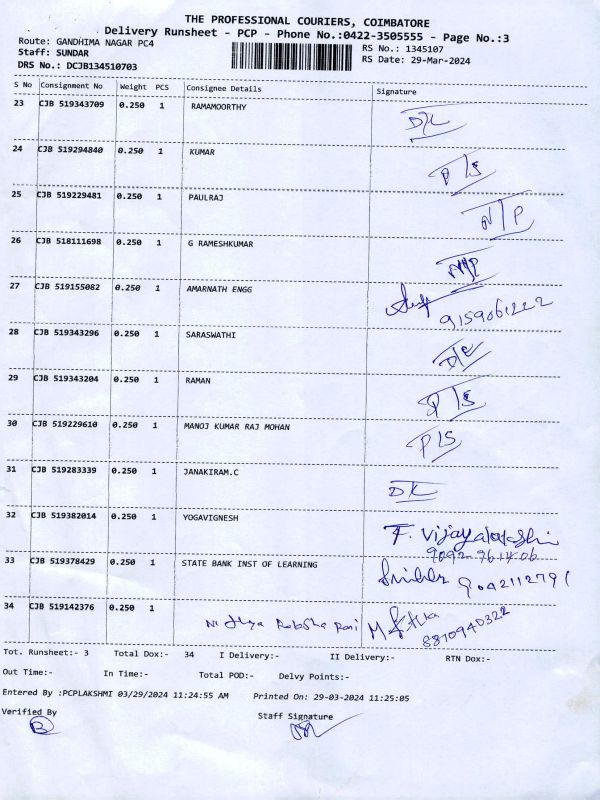 THE PROFESSIONAL COURIERS, COIMBATORE
Delivery Runsheet - PCP - Phone No.:0422-3505555 - Page No.:3
Route: GANDHIMA NAGAR PC4 RS No.: 1345107
Staff: SUNDAR RS Date: 29-Mar-2024
DRS No.: DCJB134510703
S No Consignment No Weight PCS Consignee Details Signature
23 CJB 519343709 0.250 1 RAMAMOORTHY D/L
24 CJB 519294840 0.250 1 KUMAR P/S
25 CJB 519229481 0.250 1 PAULRAJ N/P
26 CJB 518111698 0.250 1 G RAMESHKUMAR N/P
27 CJB 519155082 0.250 1 AMARNATH ENGG
9159061222
28 CJB 519343296 0.250 1 SARASWATHI D/L
29 CJB 519343204 0.250 1 RAMAN P/S
30 CJB 519229610 0.250 1 MANOJ KUMAR RAJ MOHAN P/S
31 CJB 519283339 0.250 1 JANAKIRAM.C DL
32 CJB 519382014 0.250 1 YOGAVIGNESH T. Vijayalakshmi
9092961406
33 CJB 519378429 0.250 1 STATE BANK INST OF LEARNING 9042112791
34 CJB 519142376 0.250 1
8870940322
Tot. Runsheet:- 3 Total Dox:- 34 I Delivery:- II Delivery:- RTN Dox:-
Out Time:- In Time:- Total POD:- Delvy Points:-
Entered By :PCPLAKSHMI 03/29/2024 11:24:55 AM Printed On: 29-03-2024 11:25:05
Verified By Staff Signature
B